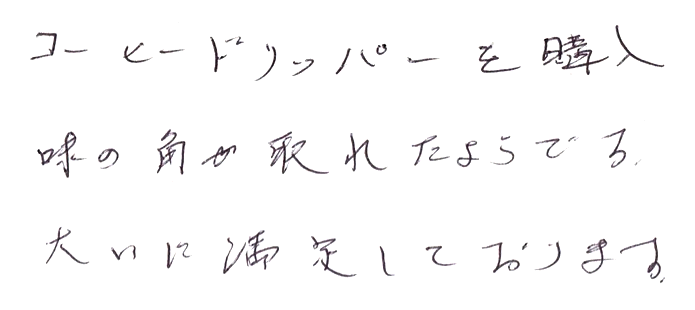 コーヒードリッパーを購入
味の角が取れたようでる。
大いに満足しております。